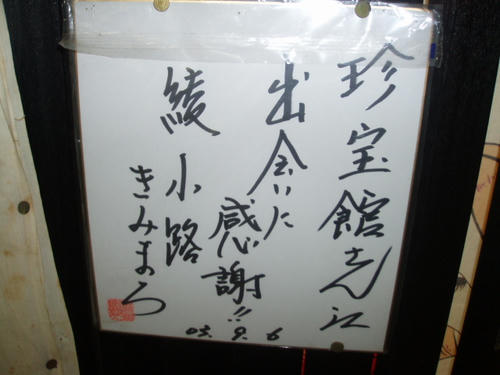 珍宝館さん江
出会いに
感謝!!
綾小路
きみまろ
03.9.6